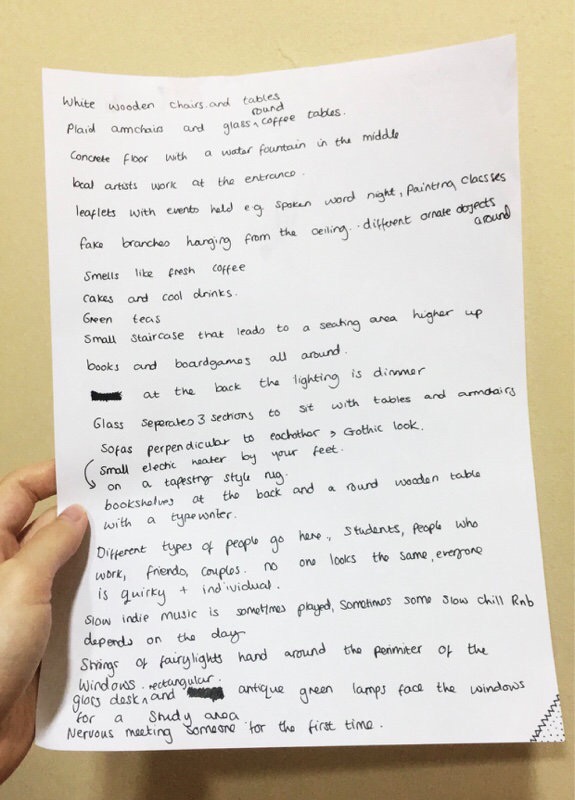 White wooden chairs and tables
Plaid armchairs and glass round coffee tables.
Concrete floor with a water fountain in the middle
local artists work at the entrance.
leaflets with events held e.g spoken word night, painting classes
fake branches hanging from the ceiling. different ornate objects around
Smells like fresh coffee
cakes and cool drinks.
Green teas
Small staircase that leads to a seating area higher up
books and boardgames all around.
at the back the lighting is dimmer
Glass seperates 3 sections to sit with tables and armchairs
Sofas perpendicular to eachother → Gothic look.
Small electic heater by your feet.
on a tapestry style rug.
bookshelves at the back and a round wooden table
with a typewriter.
Different types of people go here., Students, People who
work, friends, couples. no one looks the same, everyone
is quirky + individual.
Slow indie music is sometimes played, Sometimes some slow chill RnB
depends on the day
Strings of fairylights hand around the perimiter of the
windows.
glass desk rectangular. and antique green lamps face the windows
for a study area
Nervous meeting someone for the first time.